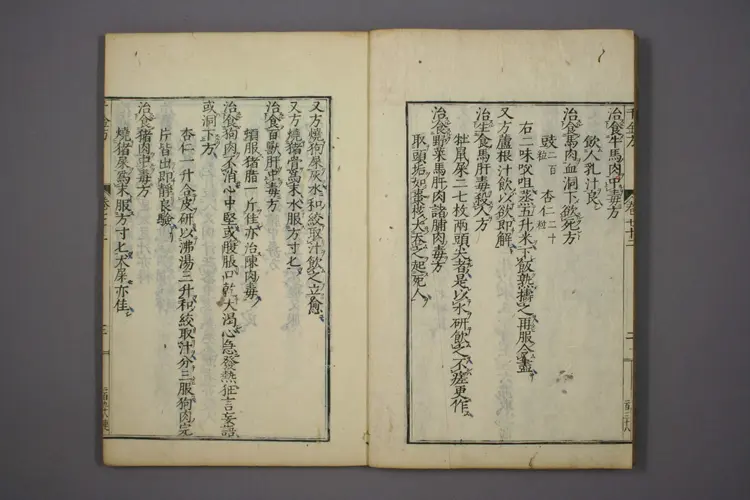 治食牛馬肉中毒方
飲人乳汁良
治食馬肉血洞下欲死方
豉二百粒 杏仁二十枚
右二味㕮咀蒸五升米下飯熟擣之再服令盡
又方蘆根汁飲以欲即解
治生食馬肝毒殺人方
牡鼠屎二七枚兩頭尖者是以水研飲之不瘥更作
治食野菜馬肝肉諸脯肉毒方
取頭垢如棗核大吞之起死人
又方燒狗屎灰水和絞取汁飲之立愈
又方燒猪骨為末水服方寸匕
治食百獸肝中毒方
頓服猪脂一斤佳亦治陳肉毒
治食狗肉不消心中堅或腹脹口乾大渴心急發熱狂言妄語
或洞下方
杏仁一升合皮研以沸湯三升和絞取汁分三服狗肉完
片皆出即靜良驗
治食猪肉中毒方
燒猪屎為末服方寸匕犬屎亦佳